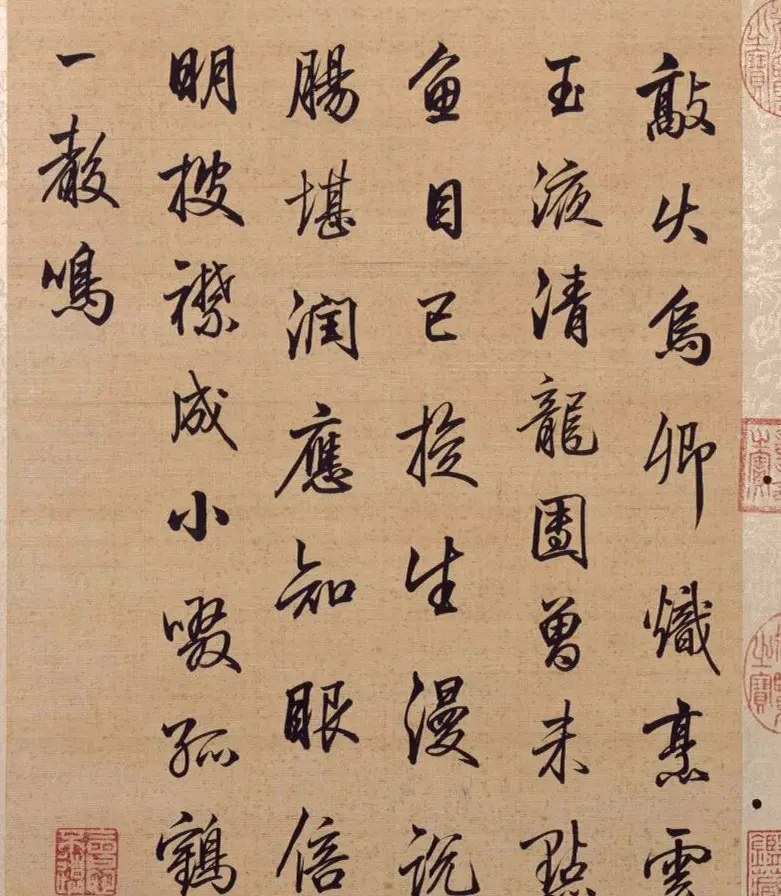 敲火烏卿熾烹雲
玉液清龍團曾未點
魚目已旋生漫說
腸堪潤應知眼倍
明披襟成小啜孤鶴
一聲鳴